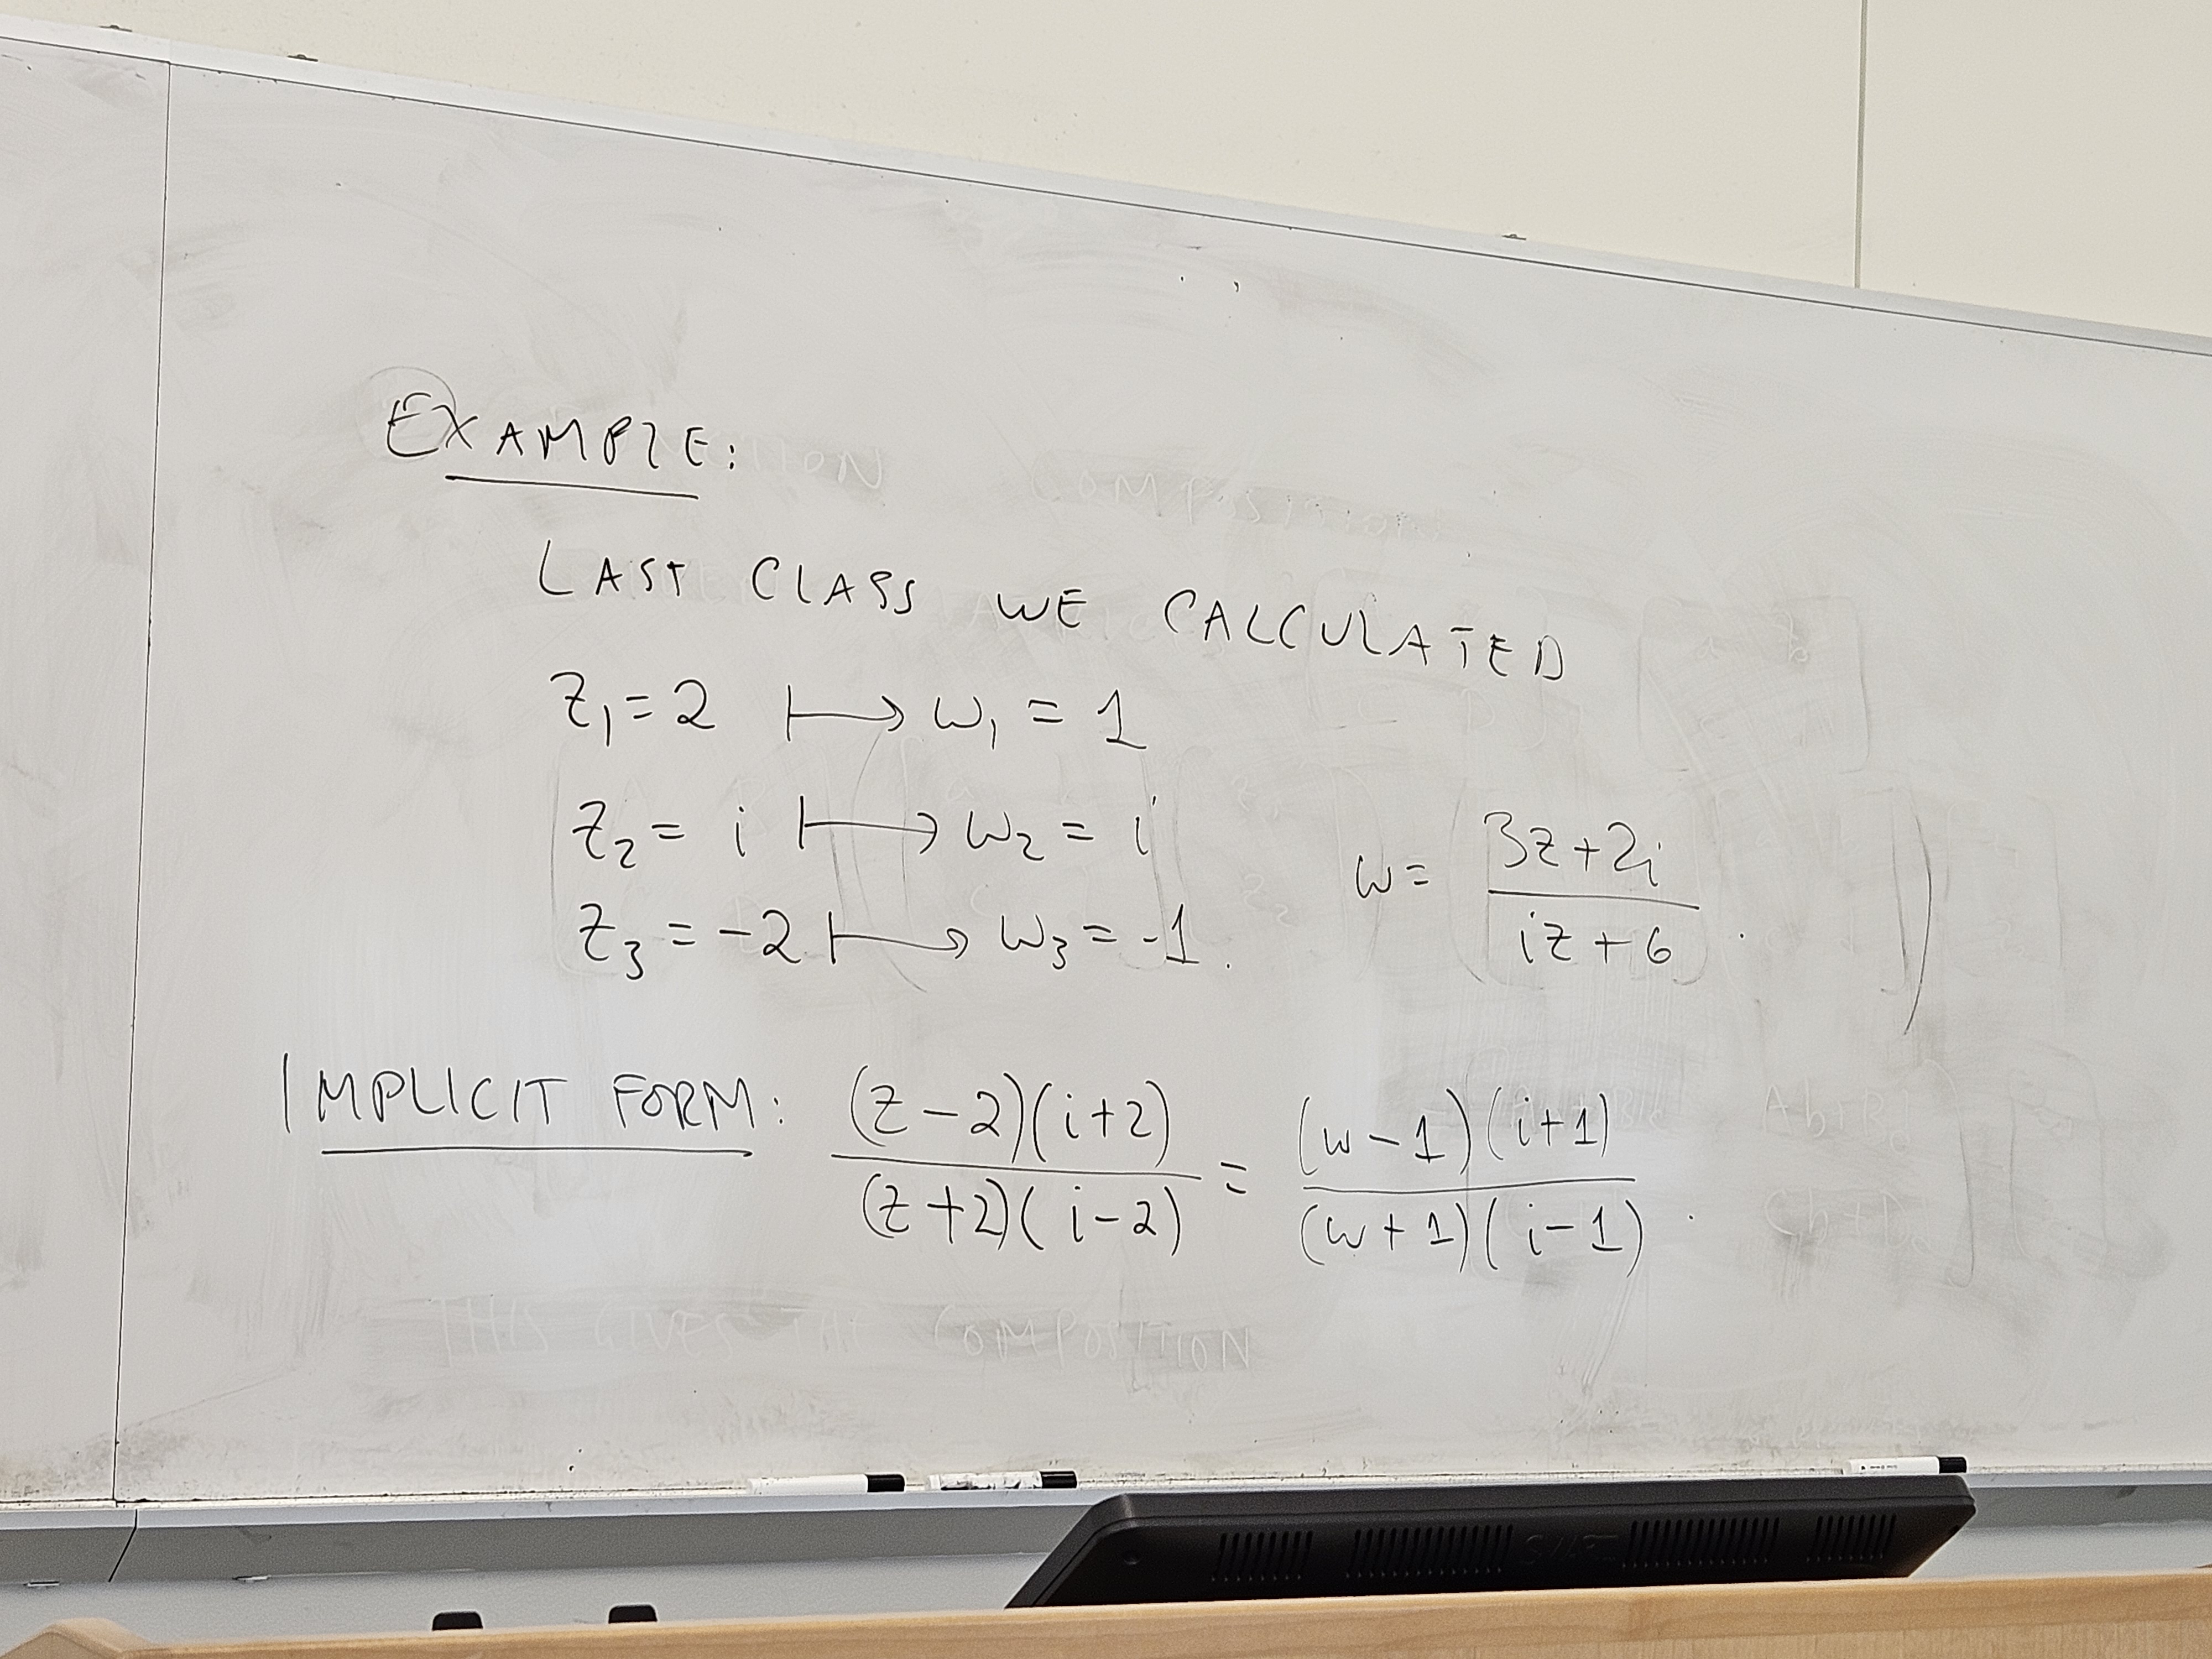 EXAMPLE:
LAST CLASS WE CALCULATED
z₁ = 2 ↦ w₁ = 1
z₂ = i ↦ w₂ = i
z₃ = -2 ↦ w₃ = -1.
w = (3z+2i)/(iz+6).
IMPLICIT FORM: ((z-2)(i+2))/((z+2)(i-2)) = ((w-1)(i+1))/((w+1)(i-1)).
THIS GIVES THE COMPOSITION